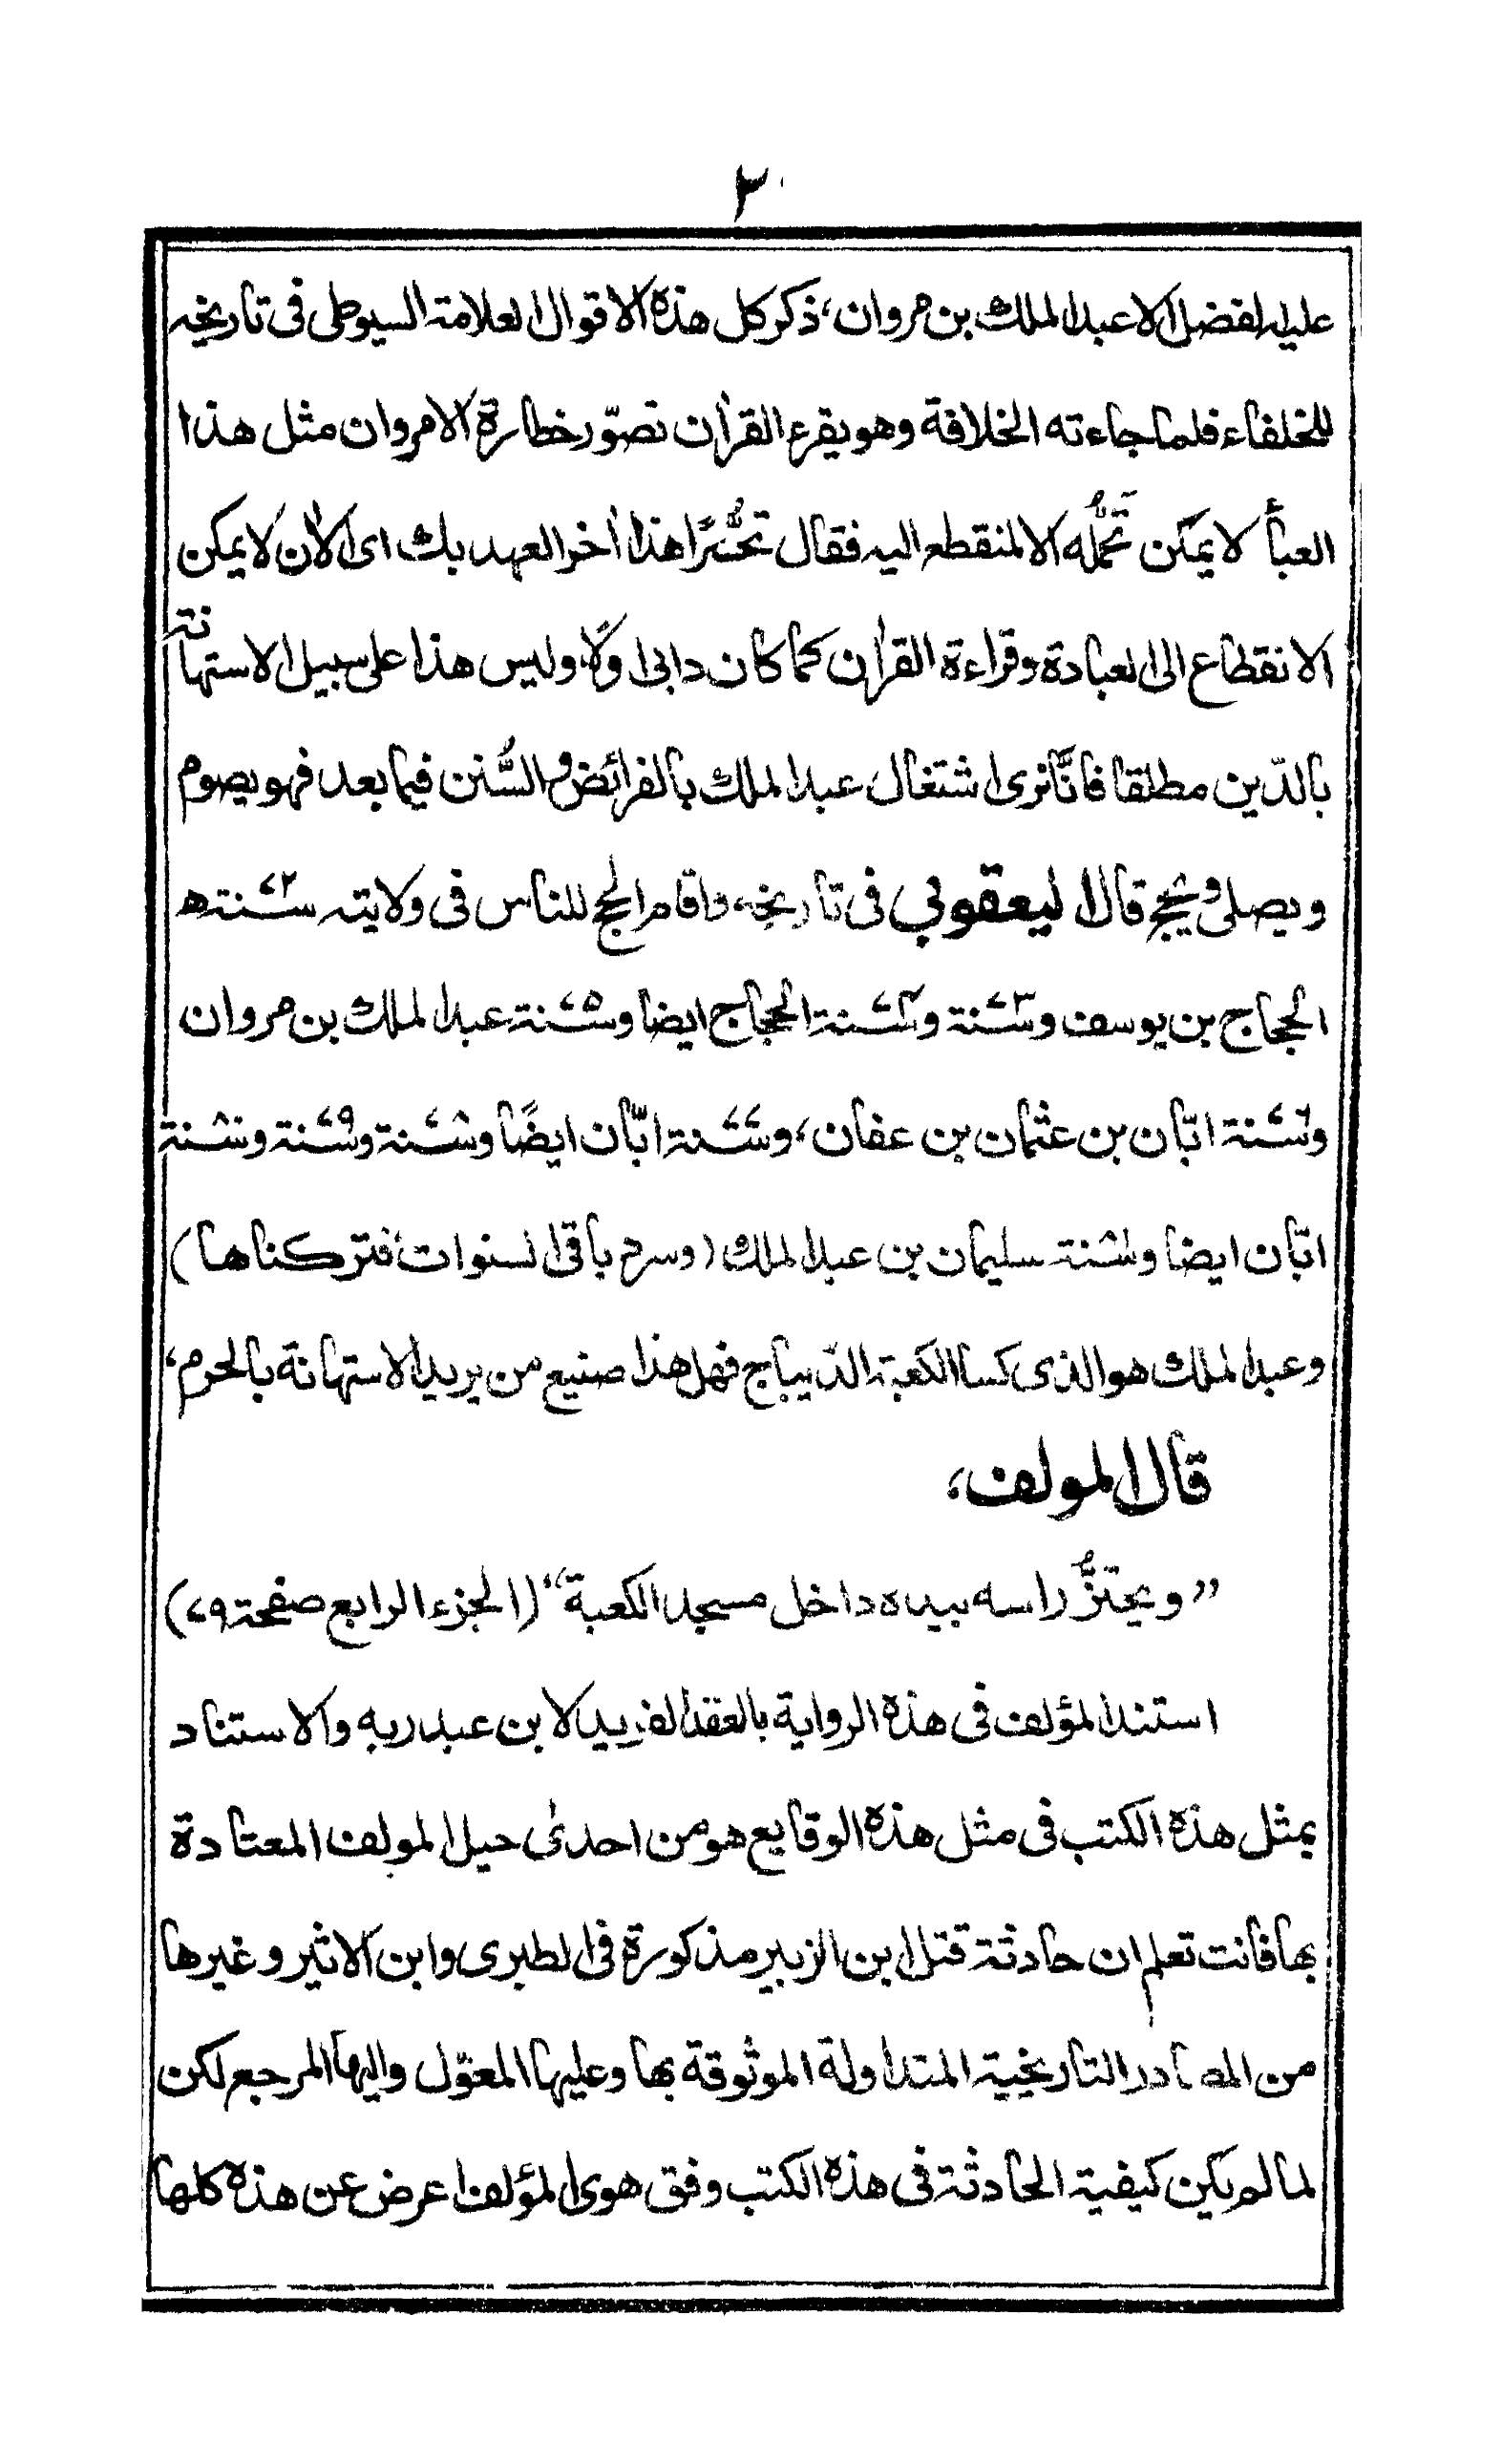 ٢٠
عليه لفضل الا عبد الملك بن مروان، ذكر كل هذه الاقوال العلامة السيوطى فى تاريخه
للخلفاء فلما جاءته الخلافة وهو يقرء القراٰن تصوّر خطارة الامر وان مثل هذا
العبأ لا يمكن تحمُّله الا لمنقطع اليه فقال تحسُّرًا هذا اٰخر العهد بك اى الاٰن لا يمكن
الانقطاع الى العبادة وقراءة القراٰن كما كان دابى اولًا، وليس هذا على سبيل الاستهانة
بالدّين مطلقا فانَّا نرى اشتغال عبد الملك بالفرائض والسُّنن فيما بعد فهو يصوم
ويصلى ويحج قال اليعقوبي فى تاريخه واقام الحج للناس فى ولايته سنة ٧٢ھ
الحجاج بن يوسف وسنة ٧٣ وسنة ٧٤ الحجاج ايضا وسنة ٧٥ عبد الملك بن مروان
وسنة ٧٦ ابّان بن عثمان بن عفان، وسنة ٧٧ ابّان ايضًا وسنة ٧٨ وسنة ٧٩ وسنة ٨٠
ابّان ايضا وسنة ٨١ سليمان بن عبد الملك (وسرد باقى السنوات فتركناها)
وعبد الملك هو الذى كسا الكعبة الدّيباج فهل هذا صنيع من يريد الاستهانة بالحرم،
قال المولف،
”ويحتزُّ راسه بيده داخل مسجد الكعبة“ (الجزء الرابع صفحة ٧٩)
استند المؤلف فى هذه الرواية بالعقد الفريد لابن عبد ربه والاستناد
بمثل هذه الكتب فى مثل هذه الوقايع هو من احدىٰ حيل المولف المعتادة
بها فانت تعلم ان حادثة قتل ابن الزبير مذكورة فى الطبرى وابن الاثير وغيرها
من المصادر التاريخية المتداولة الموثوقة بها وعليها المعوّل واليها المرجع لكن
لما لم يكن كيفية الحادثة فى هذه الكتب وفق هوى المؤلف اعرض عن هذه كلها